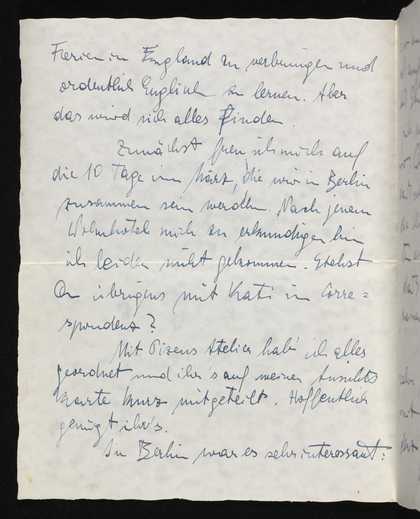 Ferien in England zu verbringen und
ordentlich Englisch zu lernen. Aber
das wird sich alles finden.
Zunächst freu ich mich auf
die 10 Tage im März, die wir in Berlin
zusammen sein werden. Nach jenem
Wohnhotel mich zu erkundigen bin
ich leider nicht gekommen. Stehst
Du übrigens mit Kati in Corre=
spondenz?
Mit Atelier hab' ich alles
geordnet und ihr's auf meiner Ansichts
karte kurz mitgeteilt. Hoffentlich
genügt ihr's.
In Berlin war es sehr interessant: